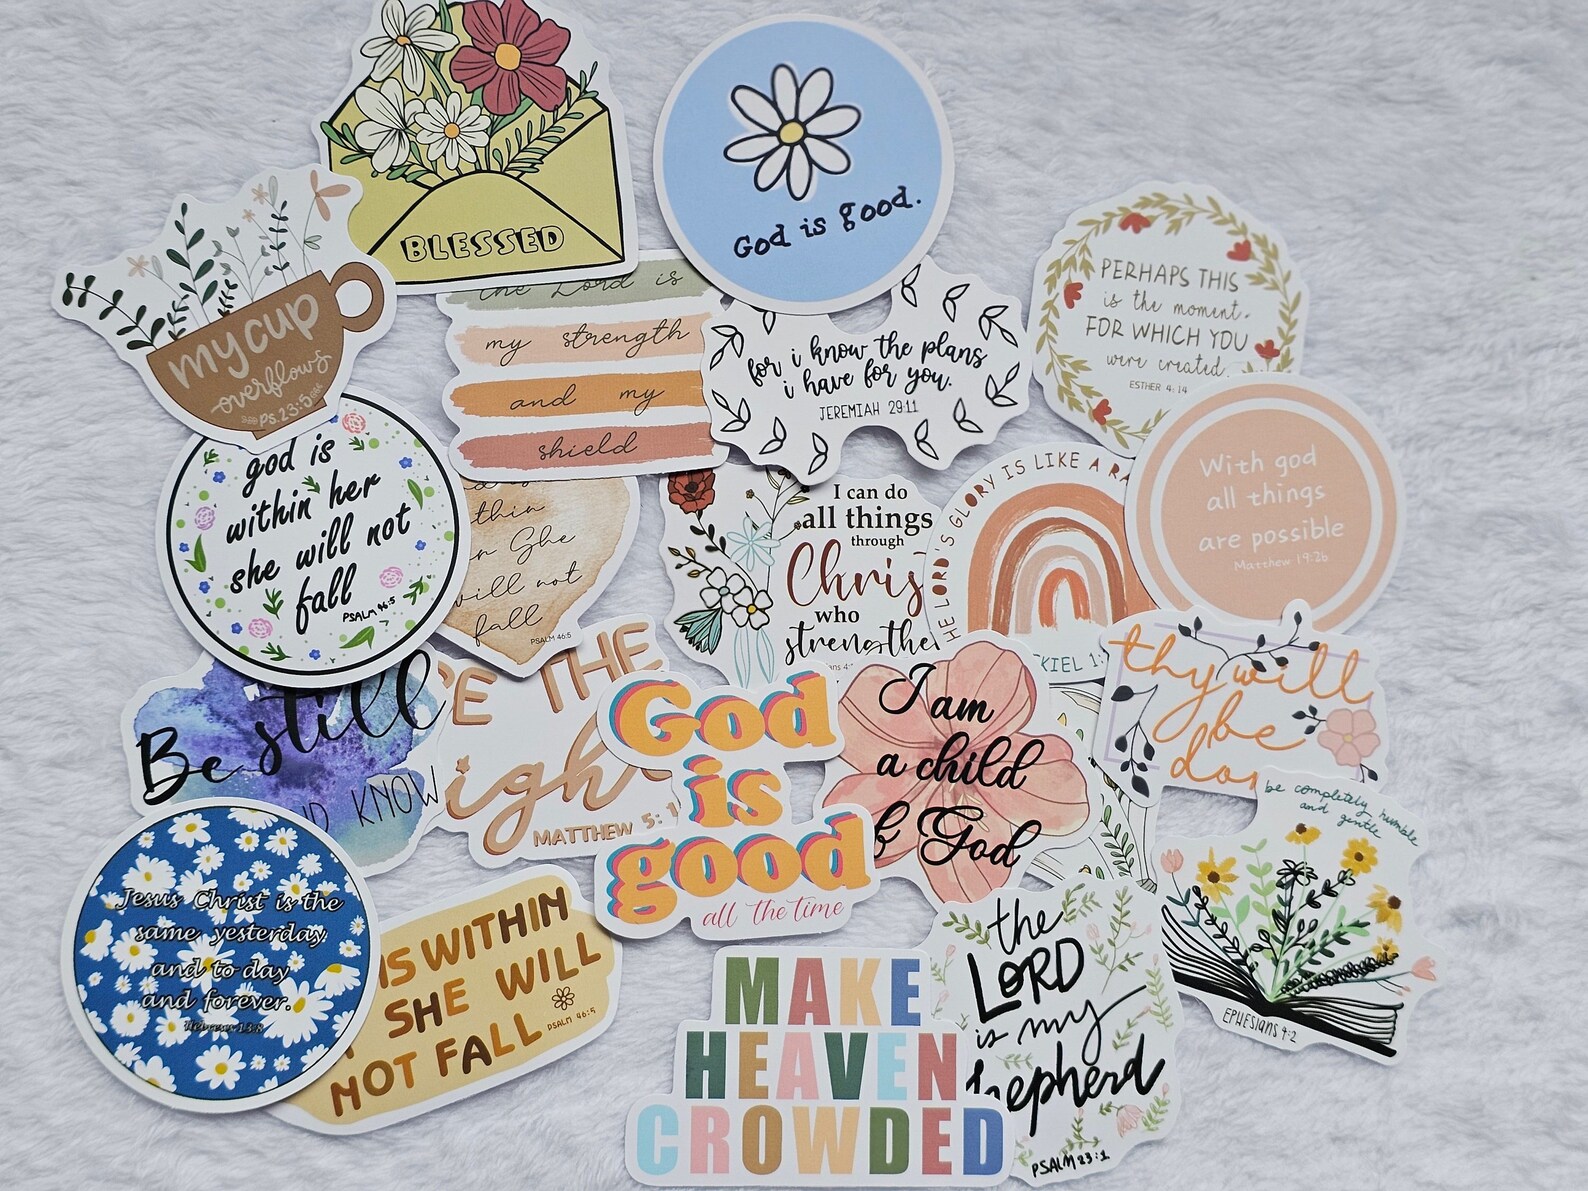 BLESSED
God is good.
my cup
overflows
PS. 23:5
the Lord is
my strength
and my
shield
for i know the plans
i have for you.
JEREMIAH 29:11
PERHAPS THIS
is the moment.
FOR WHICH YOU
were created.
ESTHER 4:14
god is
within her
she will not
fall
PSALM 46:5
will not
fall
PSALM 46:5
I can do
all things
through
Chris
who
strengthe
HE LORD'S GLORY IS LIKE A RA
KIEL 1:
With god
all things
are possible
Matthew 19:26
thy will
be
do
Be still
ND KNOW
E THE
igh
MATTHEW 5:1
God
is
good
all the time
I am
a child
of God
be completely humble
and gentle
EPHESIANS 4:2
Jesus Christ is the
same yesterday
and to day
and forever.
Hebrews 13:8
IS WITHIN
SHE WILL
NOT FALL
PSALM 46:5
MAKE
HEAVEN
CROWDED
the
LORD
is my
hepherd
PSALM 23:1